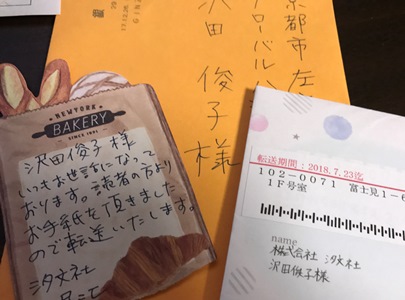 京都市左
沢田俊子様
NEWYORK
BAKERY
SINCE 1991
沢田俊子様
いつもお世話になって
おります。読者の方より
お手紙を頂きました
ので転送いたします。
汐文社
転送期間：2018.7.23迄
102-0071 富士見1-6
1F号室
name
株式会社 汐文社
沢田俊子様